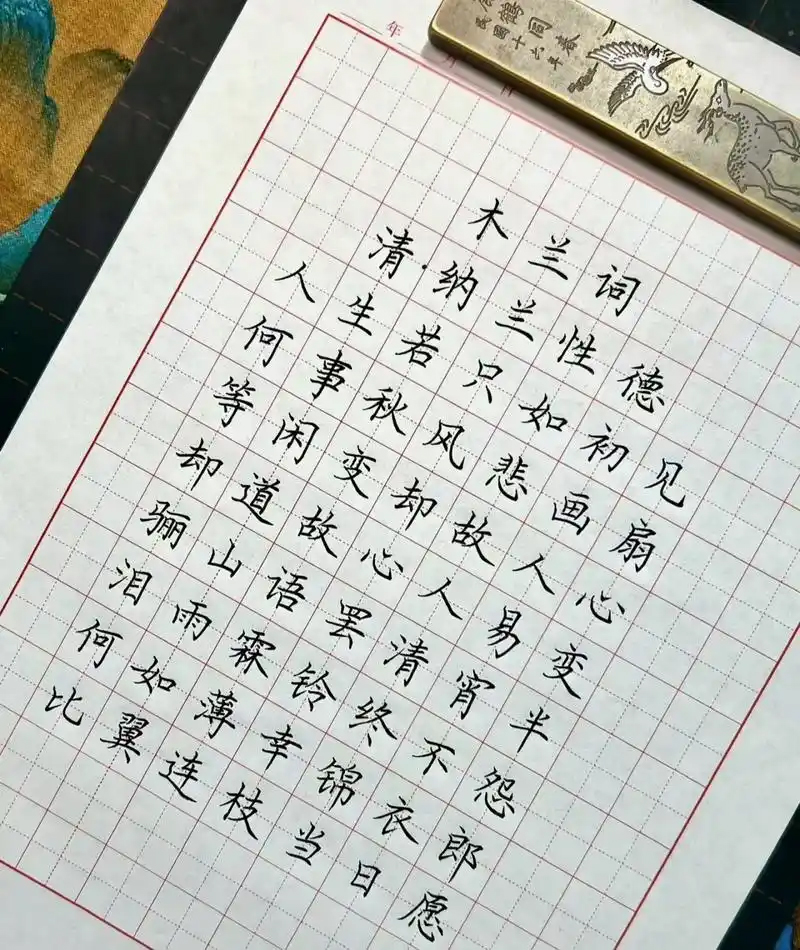 鹤同春
民国十六年
年
月
日
木兰词
清·纳兰性德
人生若只如初见
何事秋风悲画扇
等闲变却故人心
却道故心人易变
骊山语罢清宵半
泪雨霖铃终不怨
何如薄幸锦衣郎
比翼连枝当日愿